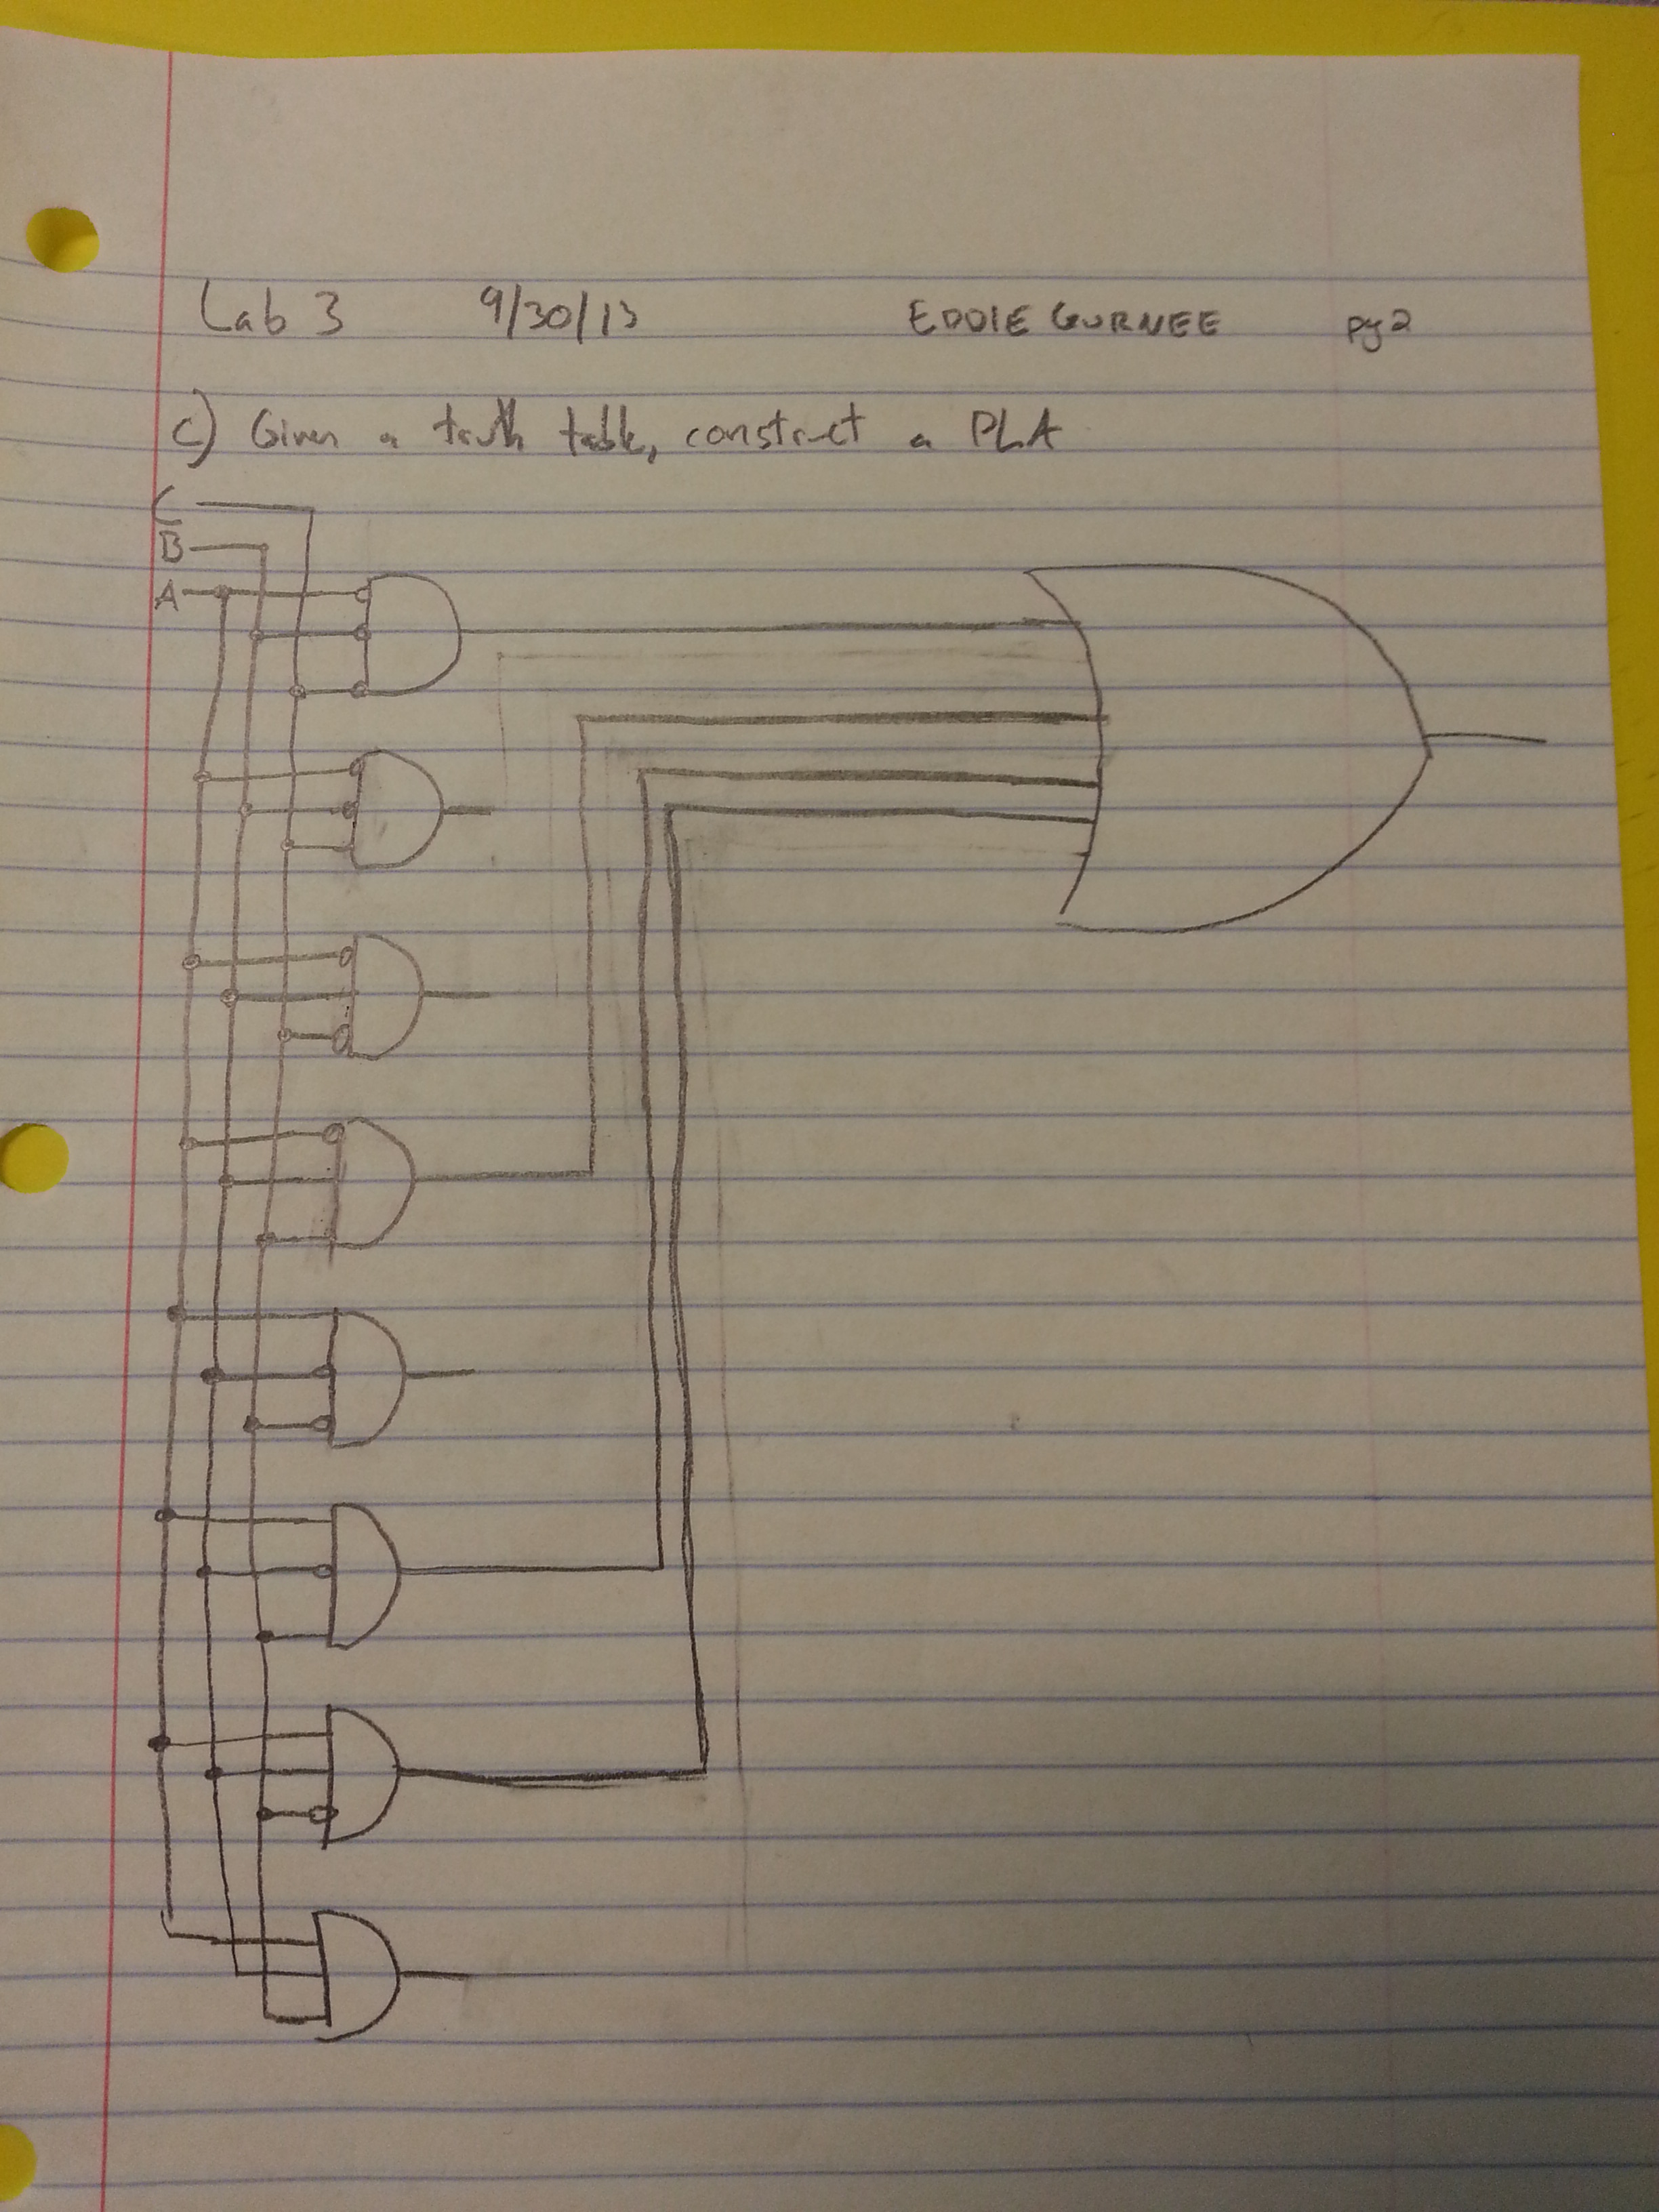 Lab 3 9/30/13 EDDIE GURNEE pg 2
c) Given a truth table, construct a PLA
C
B
A